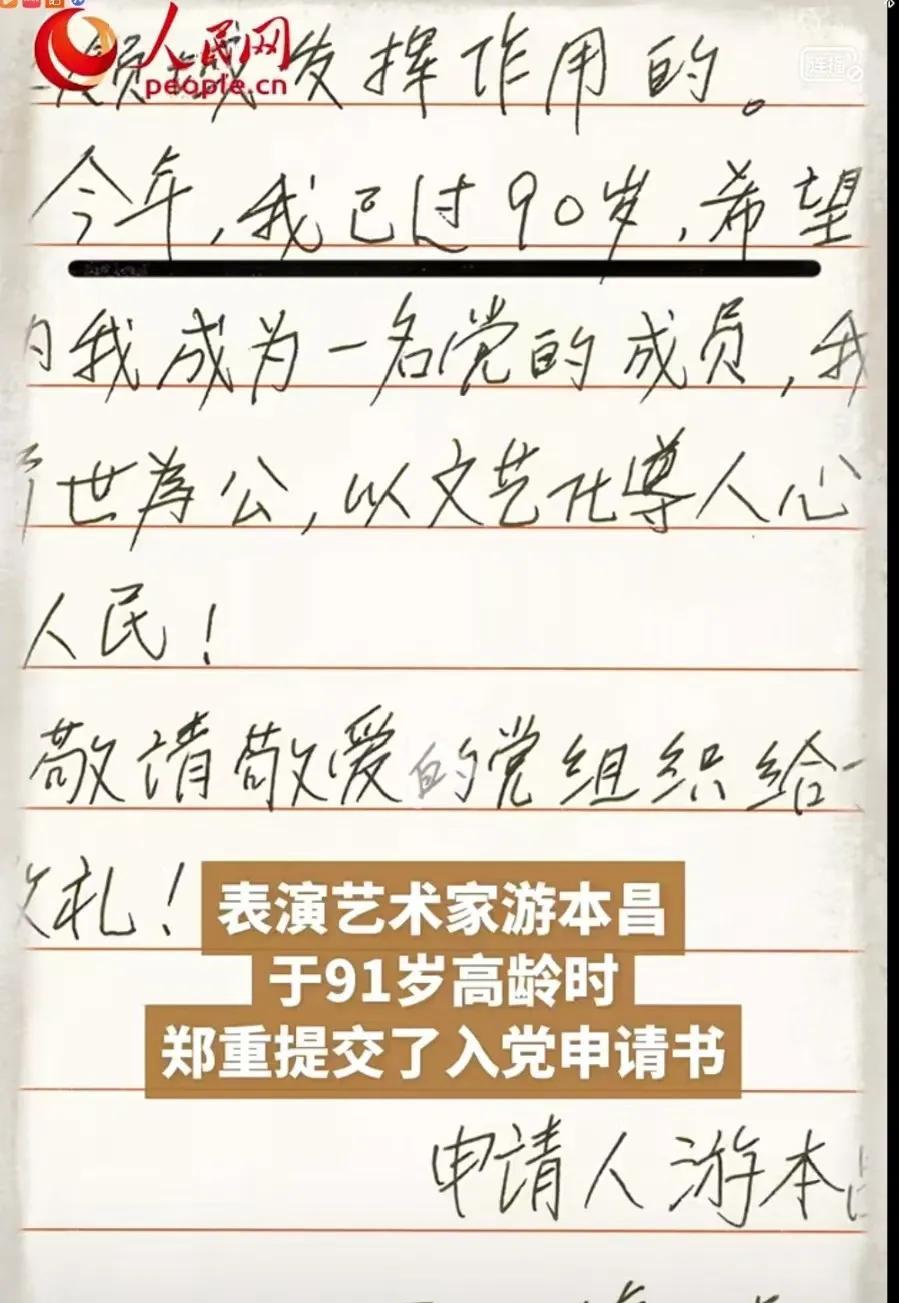 人民网
people.cn
发挥作用的。
今年,我已过90岁,希望
我成为一名党的成员,我
世為公,以文艺化導人心
人民!
敬请敬爱的党组织给
礼!
表演艺术家游本昌
于91岁高龄时
郑重提交了入党申请书
申请人游本